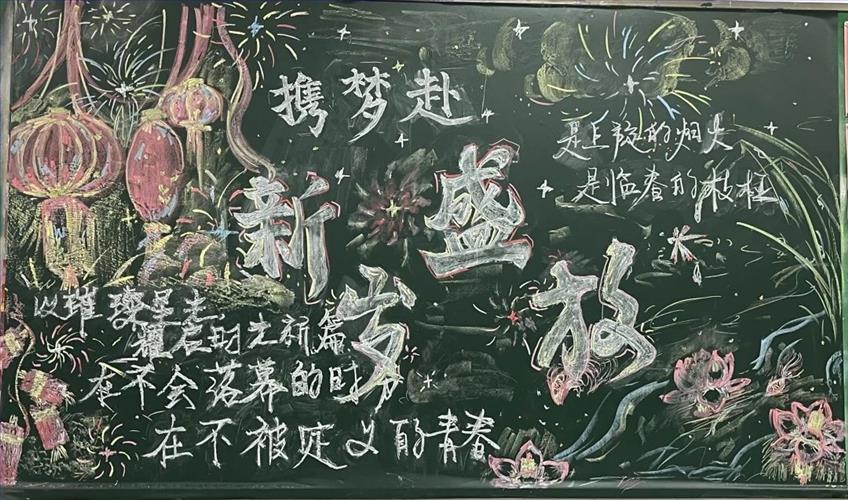 携梦赴
新岁
盛放
是上旋的烟火
是临春的枝
以璀璨呈
启明之新篇
在不会落幕的时分
在不被定义的青春